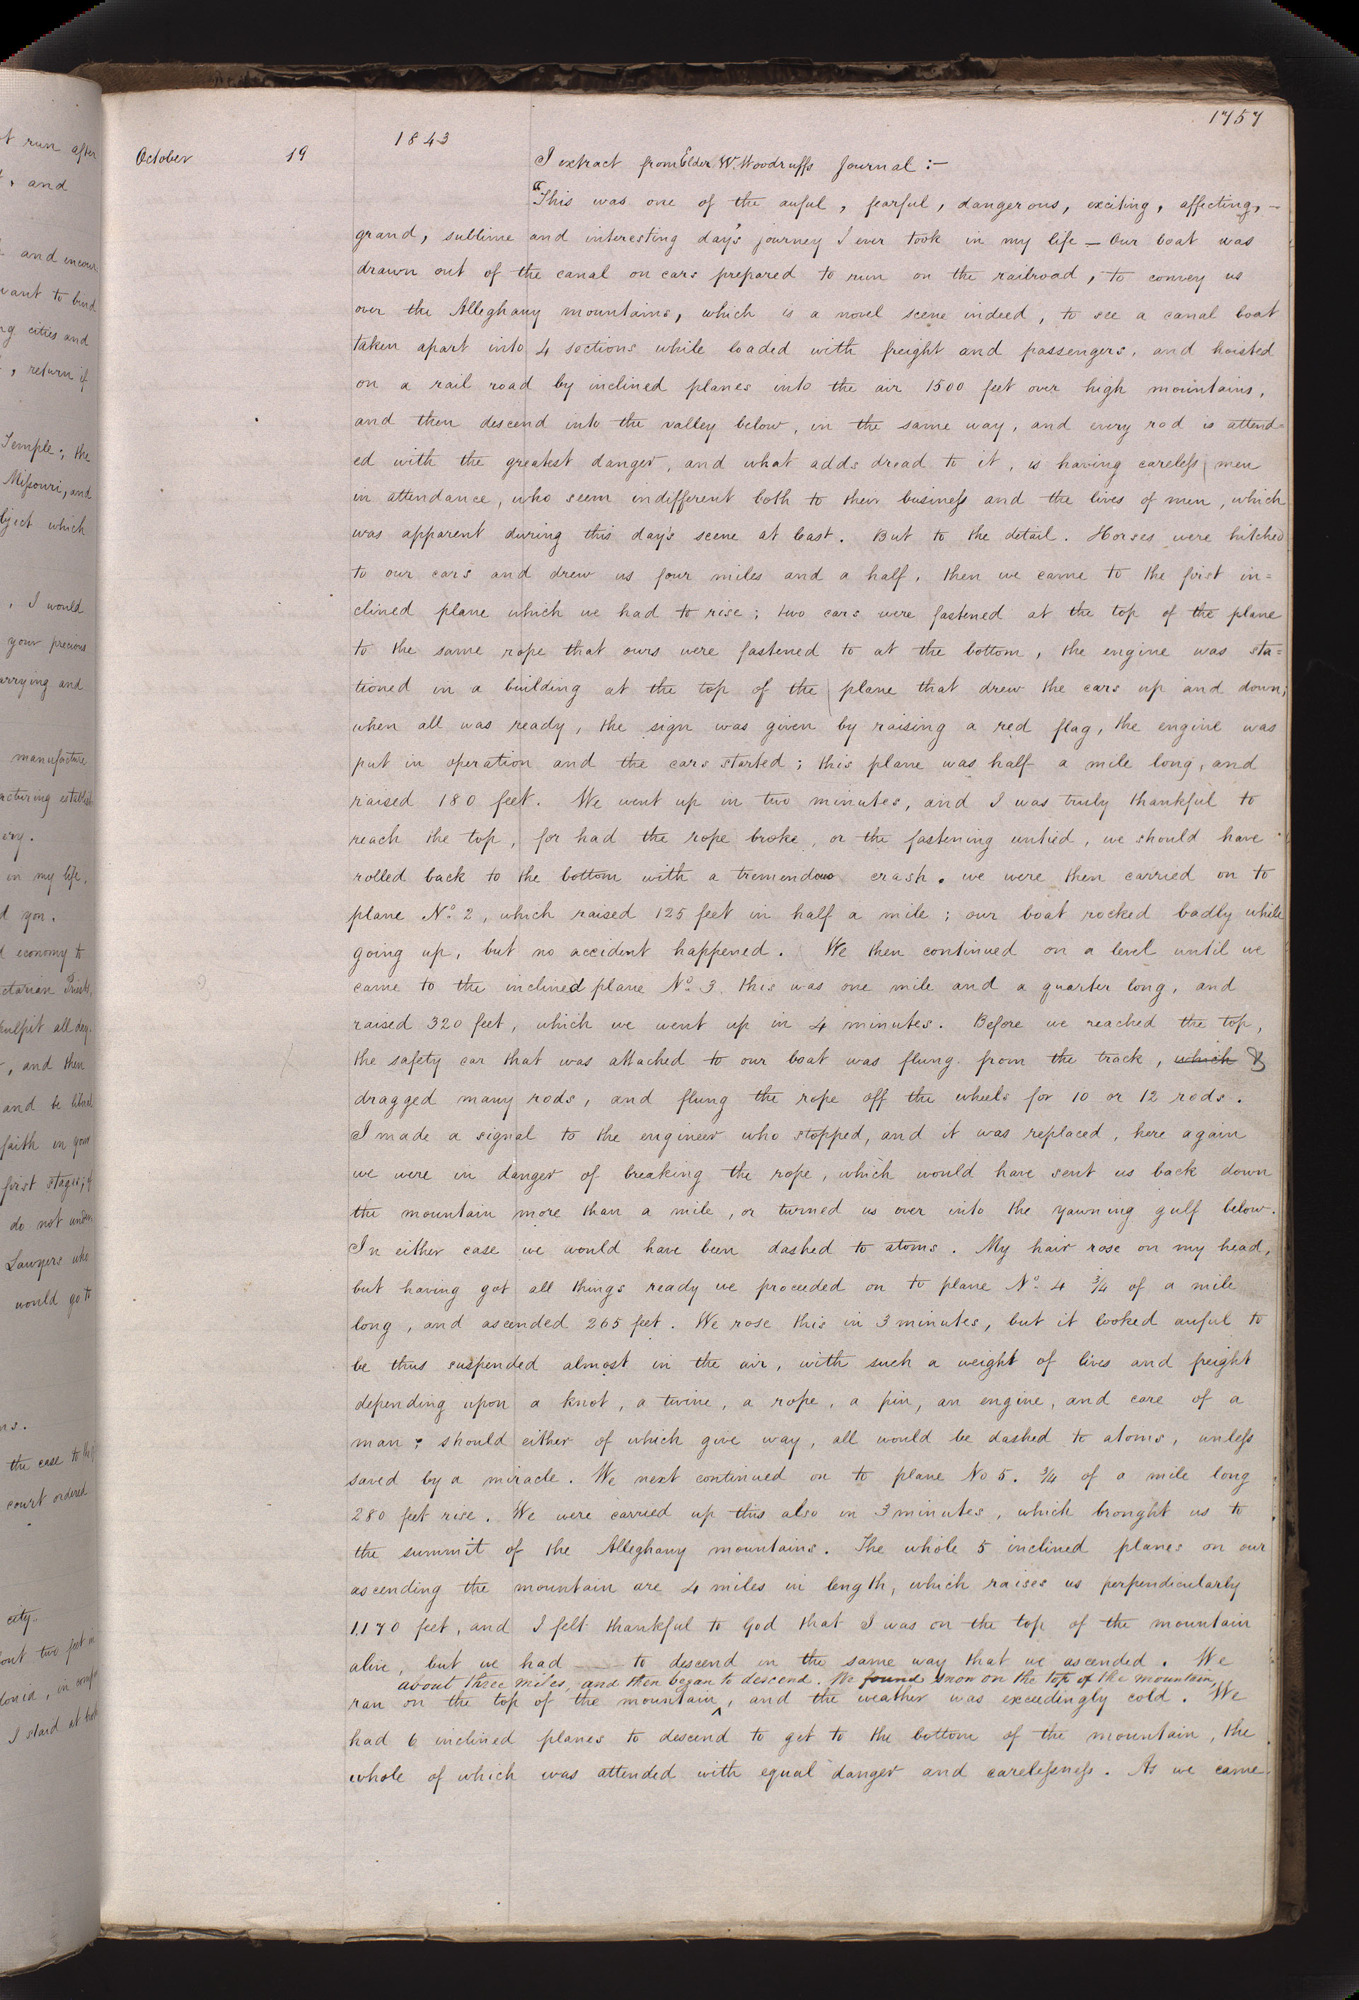 1757
1843
October 19
I extract from Elder W. Woodruffs Journal :—
"This was one of the awful, fearful, dangerous, exciting, affecting, —
grand, sublime and interesting day's journey I ever took in my life — Our boat was
drawn out of the canal on cars prepared to run on the railroad, to convey us
over the Alleghany mountains, which is a novel scene indeed, to see a canal boat
taken apart into 4 sections while loaded with freight and passengers, and hoisted
on a rail road by inclined planes into the air 1500 feet over high mountains,
and then descend into the valley below, in the same way, and every rod is attend=
ed with the greatest danger, and what adds dread to it, is having careless men
in attendance, who seem indifferent both to their business and the lives of men, which
was apparent during this day's scene at least. But to the detail. Horses were hitched
to our cars and drew us four miles and a half, then we came to the first in=
clined plane which we had to rise; two cars were fastened at the top of the plane
to the same rope that ours were fastened to at the bottom, the engine was sta=
tioned in a building at the top of the plane that drew the cars up and down;
when all was ready, the sign was given by raising a red flag, the engine was
put in operation and the cars started; this plane was half a mile long, and
raised 180 feet. We went up in two minutes, and I was truly thankful to
reach the top, for had the rope broke, or the fastening untied, we should have
rolled back to the bottom with a tremendous crash. we were then carried on to
plane No. 2, which raised 125 feet in half a mile; our boat rocked badly while
going up, but no accident happened. We then continued on a level until we
came to the inclined plane No. 3. this was one mile and a quarter long, and
raised 320 feet, which we went up in 4 minutes. Before we reached the top,
the safety car that was attached to our boat was flung from the track, which &
dragged many rods, and flung the rope off the wheels for 10 or 12 rods.
I made a signal to the engineer who stopped, and it was replaced, here again
we were in danger of breaking the rope, which would have sent us back down
the mountain more than a mile, or turned us over into the yawning gulf below.
In either case we would have been dashed to atoms. My hair rose on my head,
but having got all things ready we proceeded on to plane No. 4 3/4 of a mile
long, and ascended 265 feet. We rose this in 3 minutes, but it looked awful to
be thus suspended almost in the air, with such a weight of lives and freight
depending upon a knot, a twine, a rope, a pin, an engine, and care of a
man; should either of which give way, all would be dashed to atoms, unless
saved by a miracle. We next continued on to plane No 5. 3/4 of a mile long
280 feet rise. We were carried up this also in 3 minutes, which brought us to
the summit of the Alleghany mountains. The whole 5 inclined planes on our
ascending the mountain are 4 miles in length, which raises us perpendicularly
1170 feet, and I felt thankful to God that I was on the top of the mountain
alive, but we had — to descend in the same way that we ascended. We
about three miles, and then began to descend. We found snow on the top of the mountain,
ran on the top of the mountain^, and the weather was exceedingly cold. We
had 6 inclined planes to descend to get to the bottom of the mountain, the
whole of which was attended with equal danger and carelessness. As we came